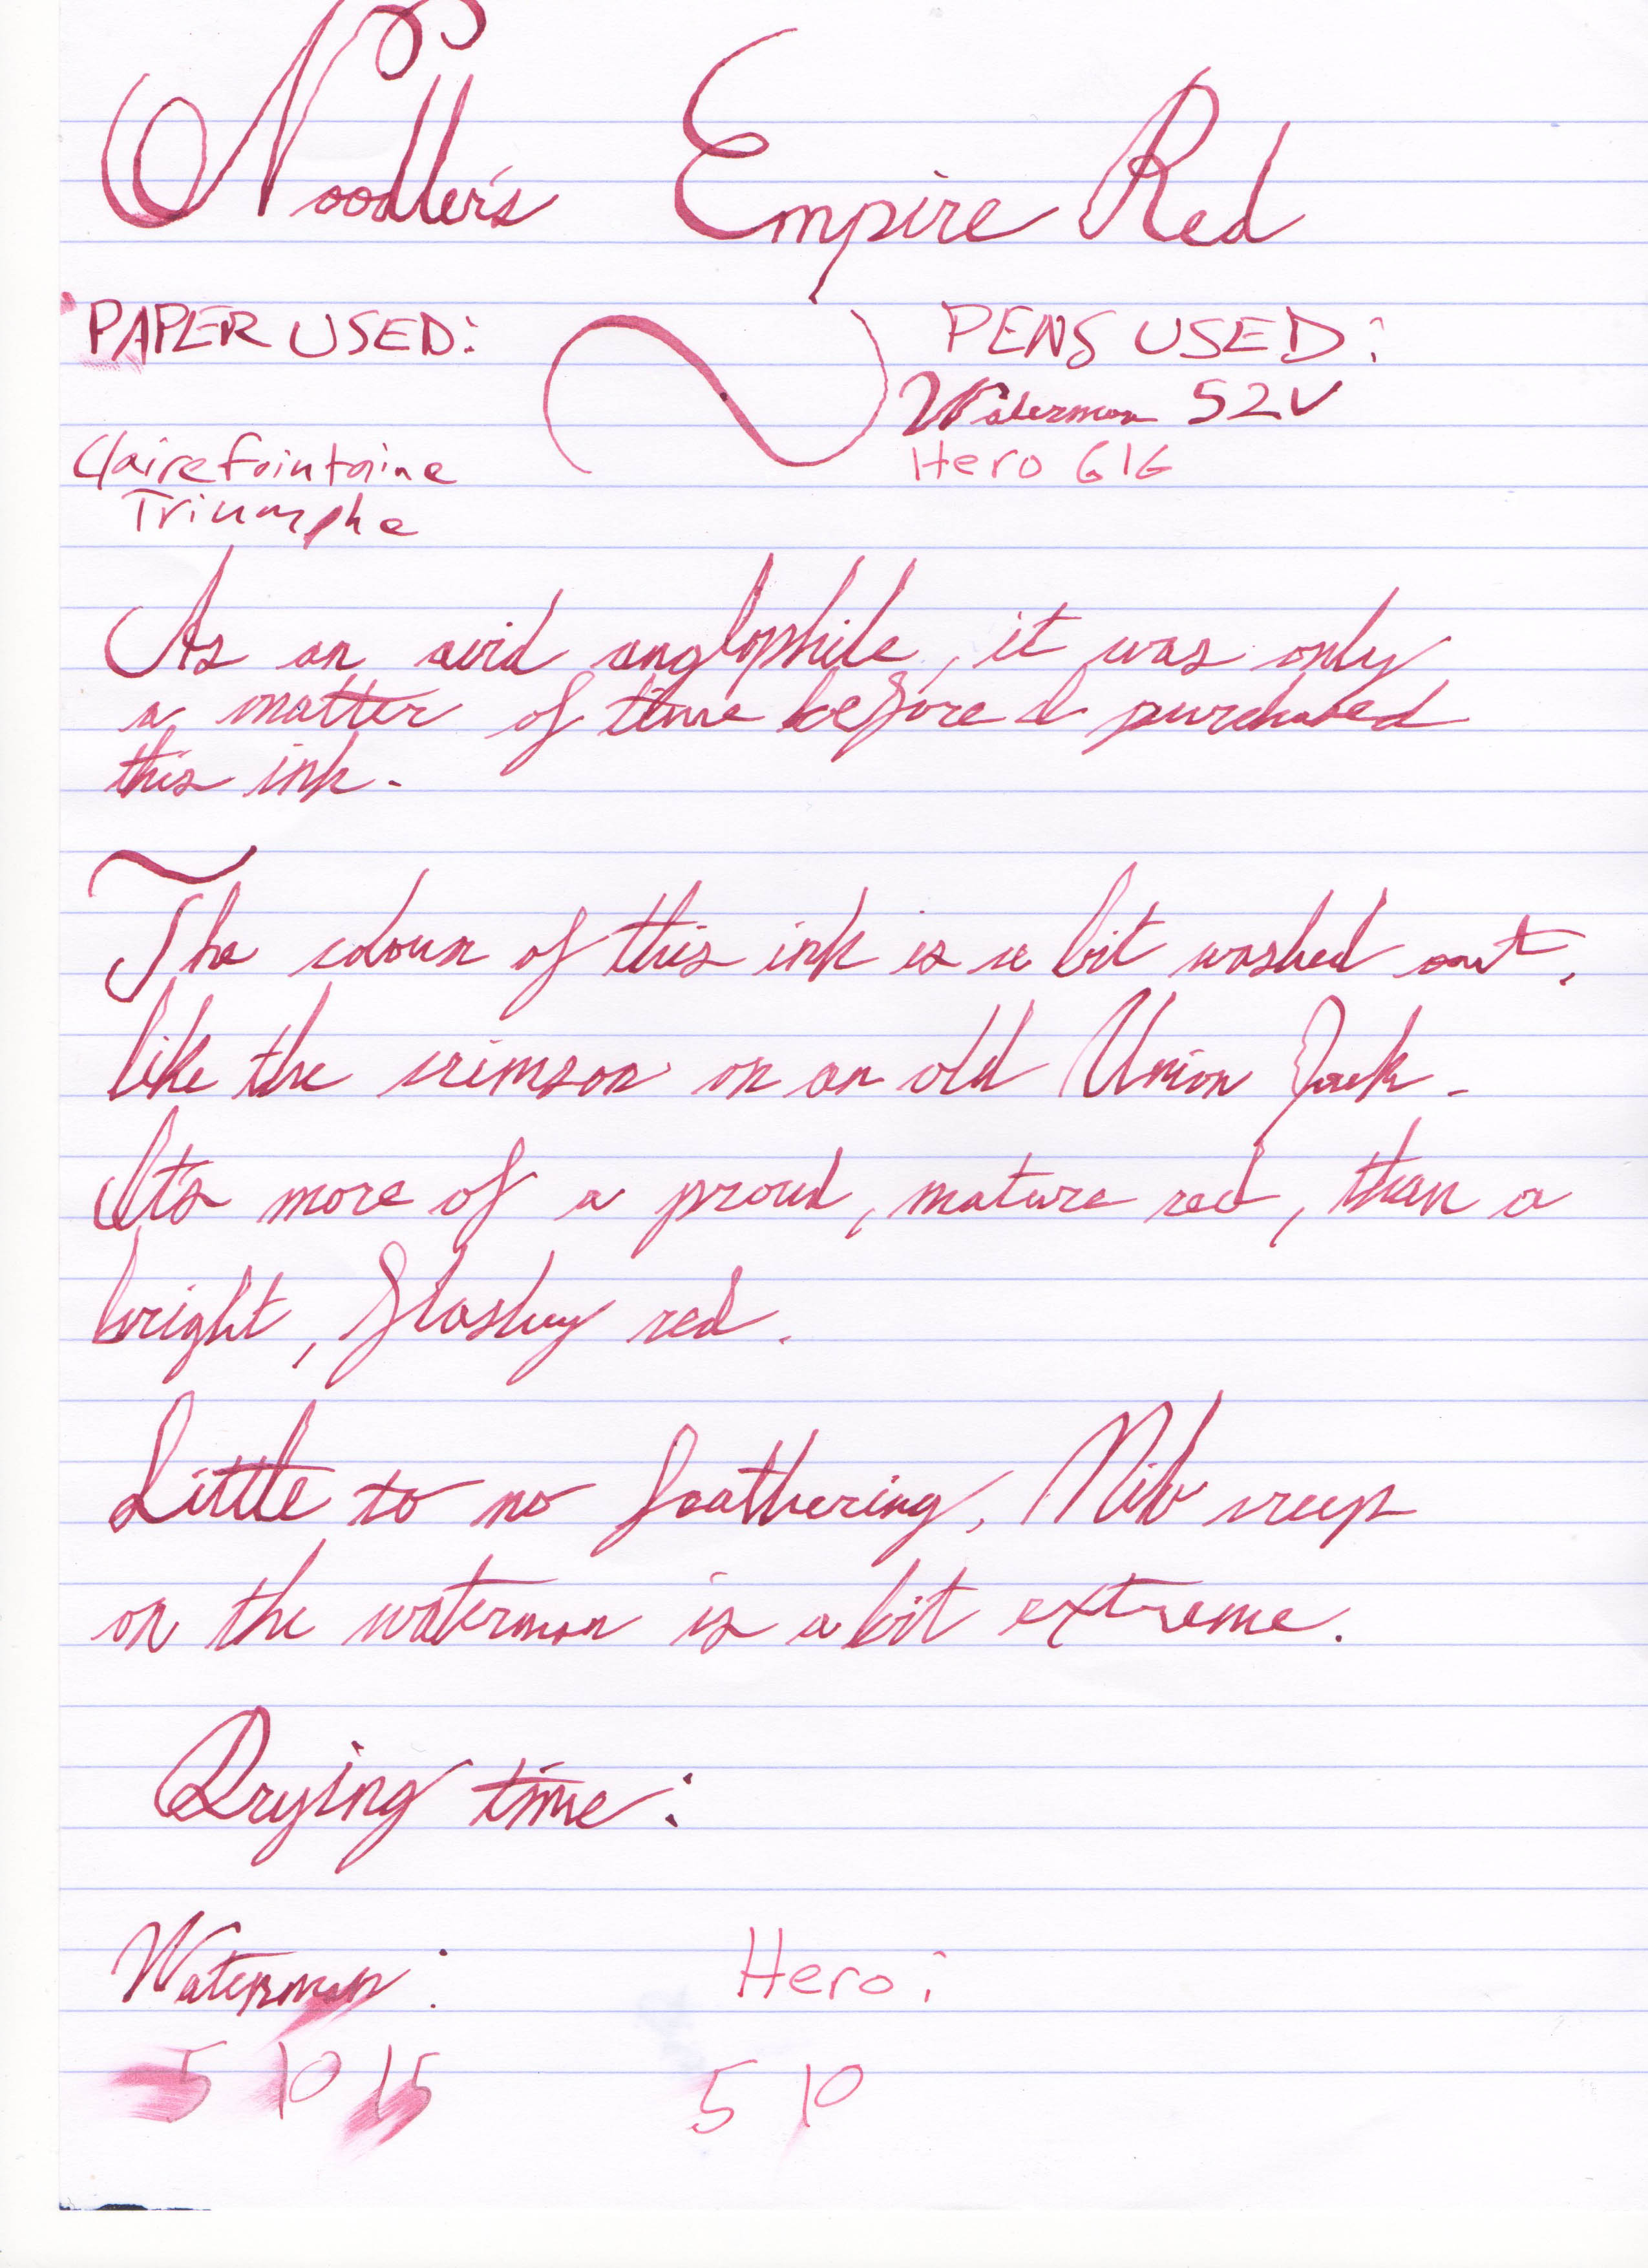 Noodler's Empire Red
PAPER USED:
Clairefointaine
Triumphe
PENS USED:
Waterman 52V
Hero 616
As an avid anglophile, it was only
a matter of time before I purchased
this ink.
The colour of this ink is a bit washed out,
like the crimson on an old Union Jack.
It's more of a proud, mature red, than a
bright, flashy red.
Little to no feathering, Nib creep
on the waterman is a bit extreme.
Drying time:
Waterman:
5 10 15
Hero:
5 10